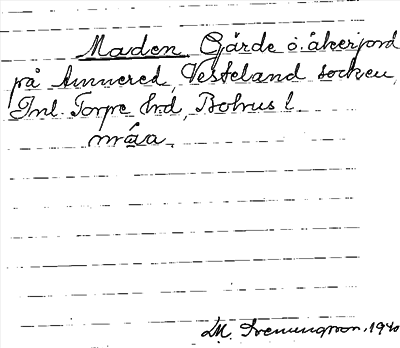 Maden, Gärde o. åkerjord
på Amnered, Vesteland socken,
Inl. Torpe hrd, Bohus l.
måa.
LM. Svenungsson, 1940